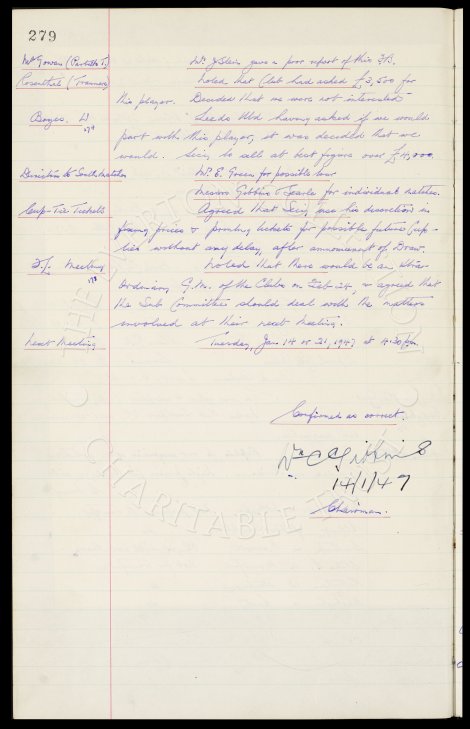 279
McGowan (Partick T.) Mr J. Stein gave a poor report of this F.B.
Rosenthal (Tranmere) Noted that Club had asked £3,500 for
this player. Decided that we were not interested
Boyes. W Leeds Utd having asked if we would
part with this player, it was decided that we
would. Secy. to sell at best figure over £4,000.
Directors to South matches Mr. E. Green for possible tour
Messrs Gibbins & Searle for individual matches.
Cup-Tie Tickets Agreed that Secy use his discretion in
fixing prices & printing tickets for possible future Cup-
ties without any delay, after announcement of Draw.
F.L. Meeting Noted that there would be an Extra-
ordinary G.M. of the Clubs on Feb 24, & agreed that
the Sub Committee should deal with the matters
involved at their next meeting.
Next Meeting Tuesday, Jan 14 or 21, 1947 at 4.30 p.m.
Confirmed as correct.
Wm C Gibbins
14/1/47
Chairman.
THE EVERTON
CHARITABLE